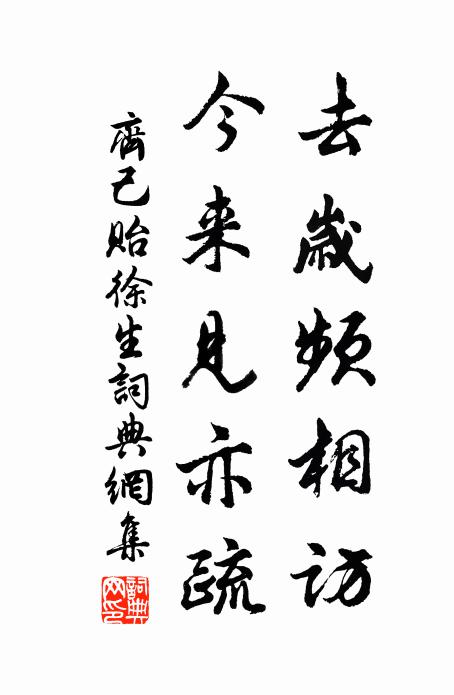 去歲頻相訪
今来見亦疏
齊己貽徐生詞典網集
詞典
网印